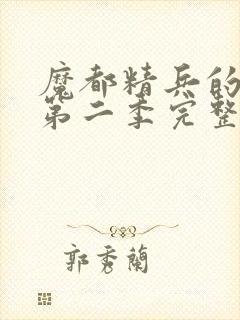 魔都精兵的
第二季完整
郭秀蘭